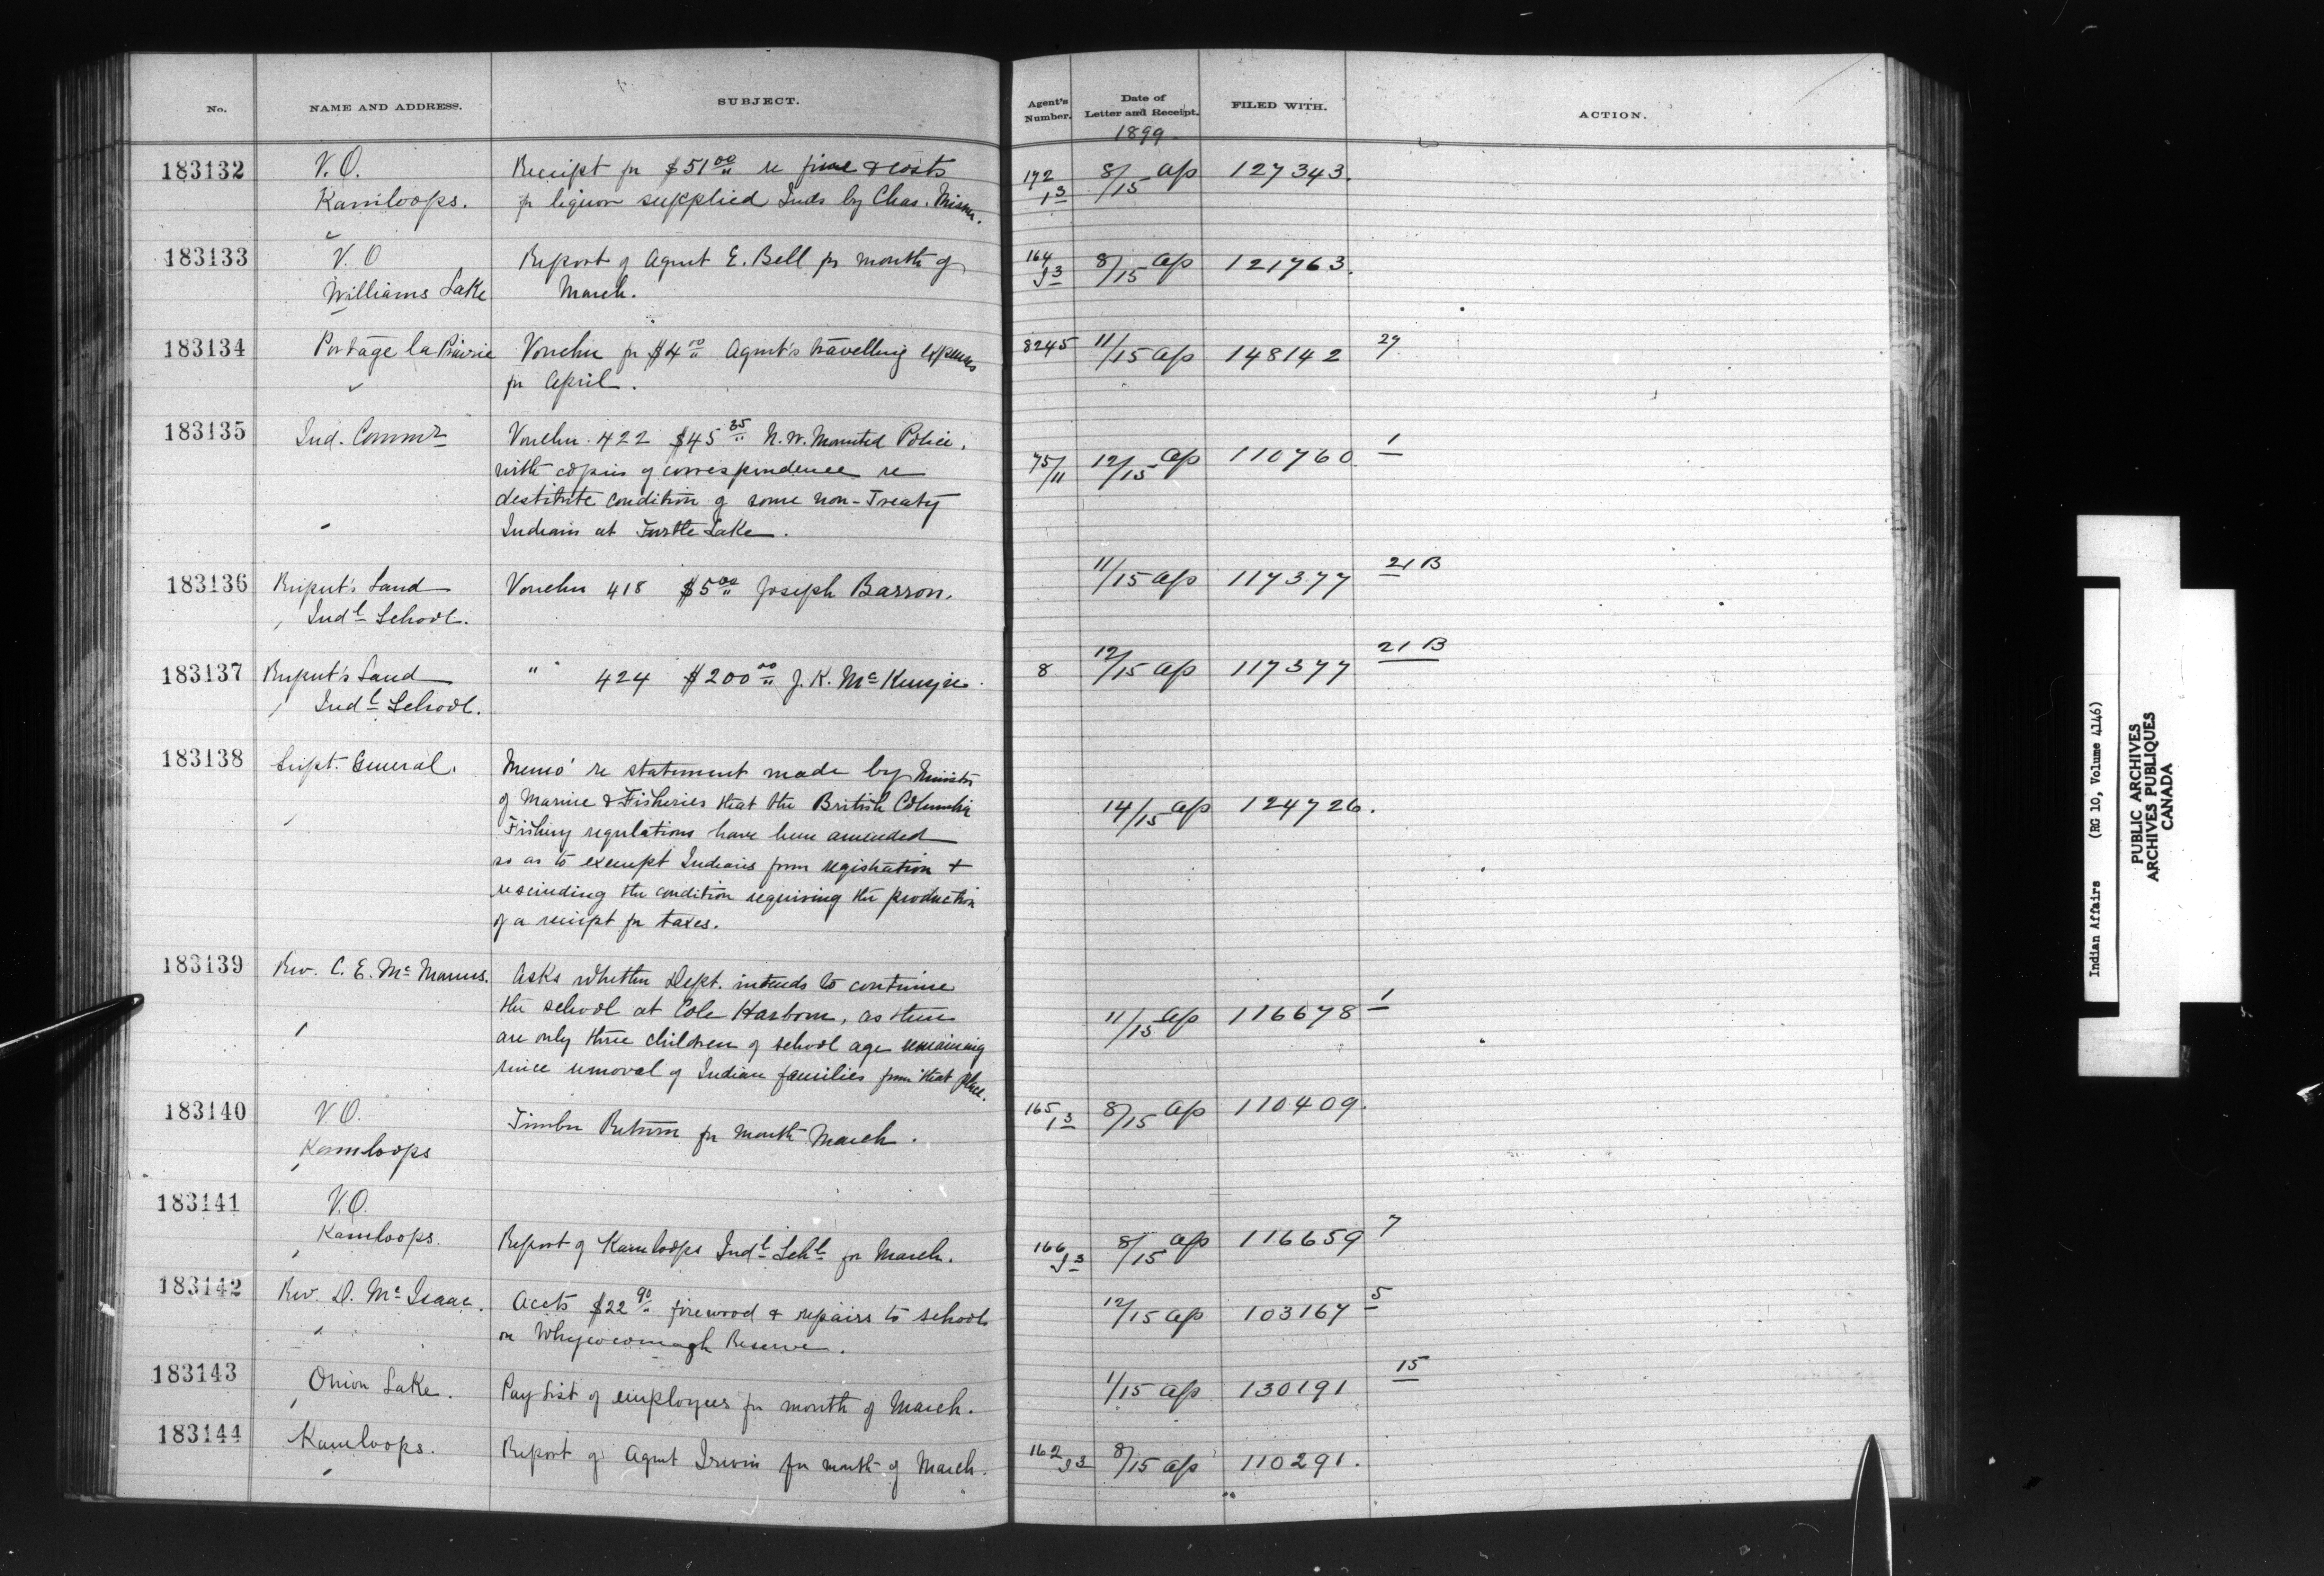 No. NAME AND ADDRESS. SUBJECT. Agent's Number. Date of Letter and Receipt. FILED WITH. ACTION.
1899.
183132 V. O. Receipt fr $51 00/" re fine & costs 172/13 8/15 Ap 127343.
Kamloops. fr liquor supplied Inds by Chas.
183133 V. O Report of Agent E. Bell fr month of 164/93 8/15 Ap 121763.
Williams Lake March.
183134 Portage la Prairie Voucher fr $4 00/" Agent's travelling expenses 8245 11/15 Ap 148142 29
fr April.
183135 Ind. Commr Voucher 422 $45 35/" N. W. Mounted Police,
with copies of correspondence re 75/11 12/15 Ap 110760 1
destitute condition of some non-Treaty
Indians at Turtle Lake.
183136 Rupert's Land Voucher 418 $5 00/" Joseph Barron. 11/15 Ap 117377 21 B
Indl School.
183137 Rupert's Land " 424 $200 00/" J. K. McKenzie. 8 12/15 Ap 117377 21 B
Indl School.
183138 Supt. General. Memo' re statement made by Minister
of Marine & Fisheries that the British Columbia 14/15 Ap 124726.
Fishery regulations have been amended
so as to exempt Indians from registration &
rescinding the condition requiring the production
of a receipt fr taxes.
183139 Rev. C. E. McManus. Asks whether Dept. intends to continue
the school at Cole Harbour, as there 11/15 Ap 116678 1
are only three children of school age remaining
since removal of Indian families from that place.
183140 V. O. Timber Return fr month March. 165/13 8/15 Ap 110409.
Kamloops
183141 V. O.
Kamloops. Report of Kamloops Indl Schl fr March. 166/93 8/15 Ap 116659 7
183142 Rev. D. McIsaac. Accts $22 90/" firewood & repairs to school 12/15 Ap 103167 5
on Whycocomagh Reserve.
183143 Onion Lake. Pay list of employees fr month of March. 1/15 Ap 130191 15
183144 Kamloops. Report of Agent Irwin fr month of March. 162/93 8/15 Ap 110291.
Indian Affairs (RG 10, Volume 4146)
PUBLIC ARCHIVES
ARCHIVES PUBLIQUES
CANADA